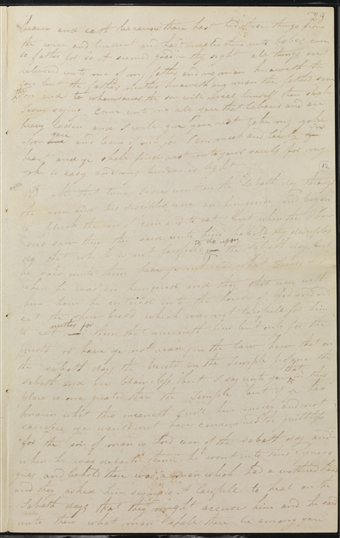 heaven and earth because thou hast hid these things from
the wise and prudent and hast revealed them unto babes even
so father for so it seemed good in thy sight all things are
delivered unto me of my father and no man knoweth the
son but the father neither knoweth any man the father save
the son and to whomsoever the son will reveal himself then spake
Jesus saying Come unto me all ye that labour and are
heavy laden and I will give you rest take my yoke
upon you and learn of me for I am meek and lowly in
heart and ye shall find rest unto your souls for my
yoke is easy and my burden is light
At that time Jesus went on the Sabath day through
the corn and his disciples were an hungered and began
to pluck the ears of corn and to eat but when the
saw them they said unto him behold thy disciples
do that which is not lawful to do upon the sabath day but
he said unto them have ye not read what David did
when he was an hungered and they that were with
him how he entered into the house of God and did
eat the shew bread which was not lawful for him
to eat neither for them that were with him but only for the
priests or have ye not read in the law how that on
the sabath days the priests in the temple profane the
sabath and are blameless but I say unto you that in this
place is one greater than the temple but if ye had
known what this meaneth I will have mercy and not
sacrifice ye would not have condemned the guiltless
for the son of man is Lord even of the sabath day and
when he was departed thence he went into their synagogues
and behold there was a man which had a withered hand
and they asked him saying is it lawful to heal on the
sabath days that they might accuse him and he said
unto them what man shall there be among you